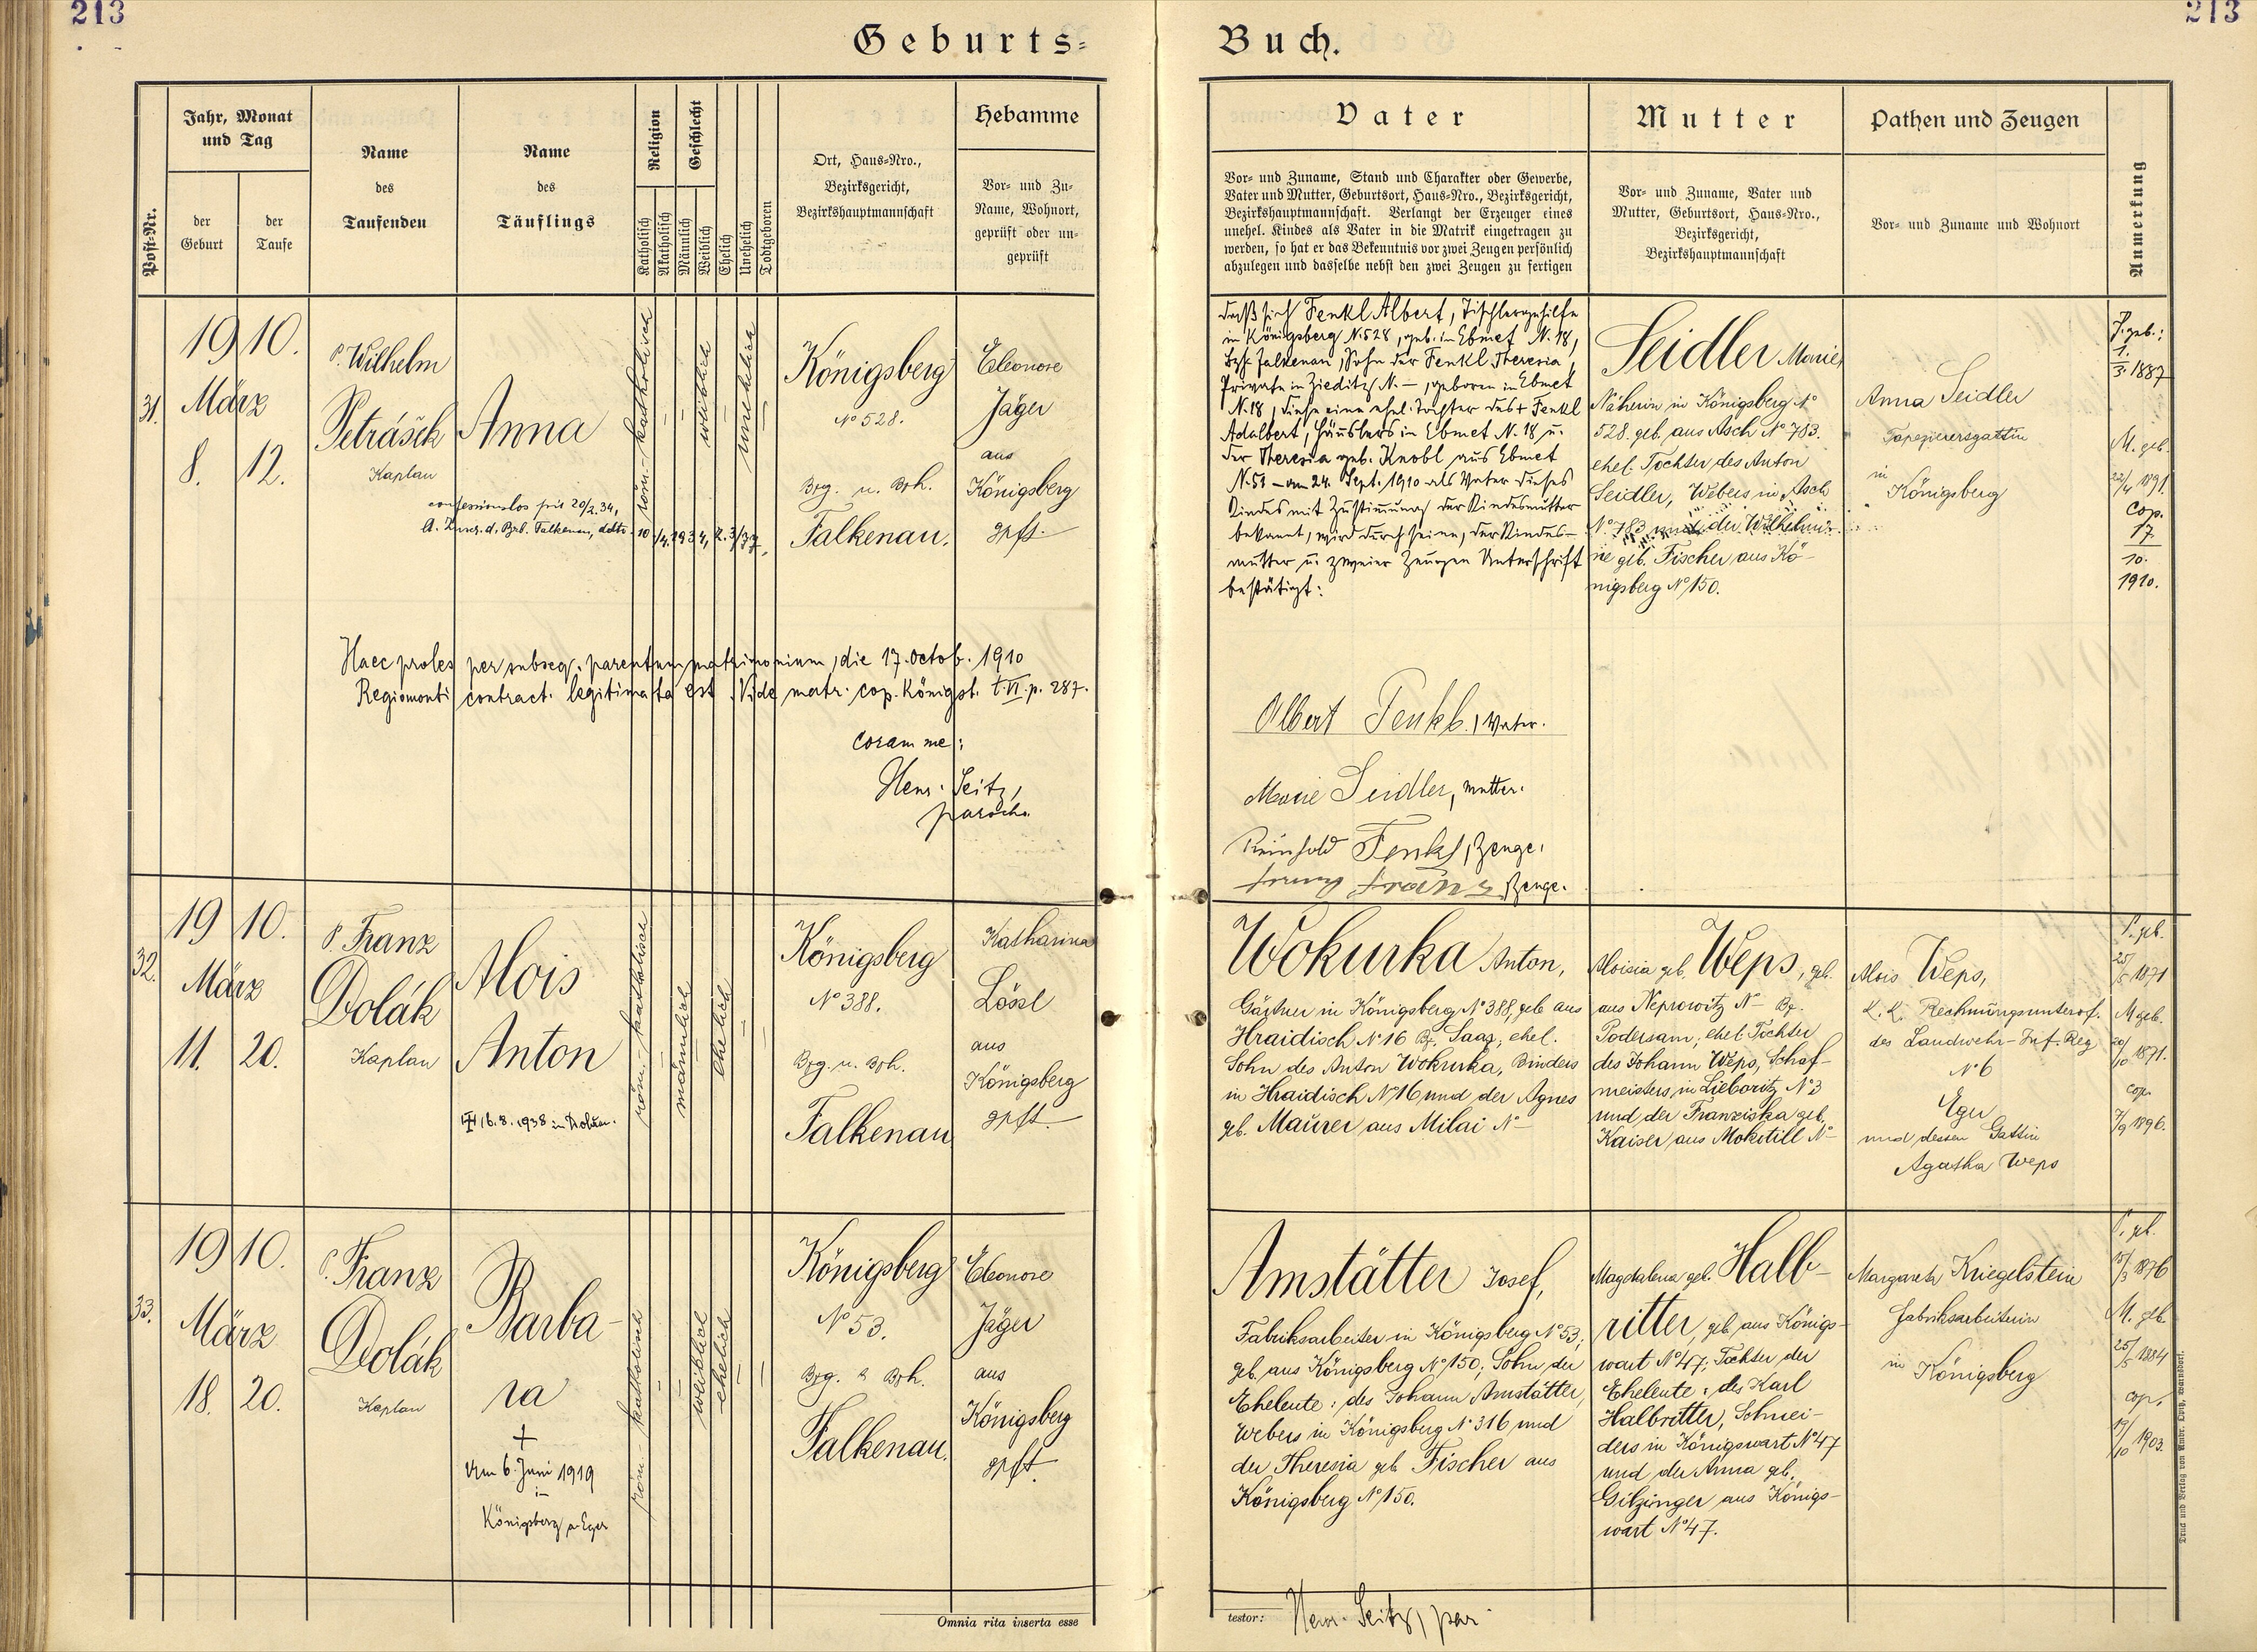 213
213
Geburts-
Buch.
Post-Nr.
Jahr, Monat
und Tag
der
Geburt
der
Taufe
Name
des
Taufenden
Name
des
Täuflings
Religion
Katholisch
Akatholisch
Geschlecht
Männlich
Weiblich
Ehelich
Unehelich
Todtgeboren
Ort, Haus-Nro.,
Bezirksgericht,
Bezirkshauptmannschaft
Hebamme
Vor- und Zu-
Name, Wohnort,
geprüft oder un-
geprüft
Vater
Vor- und Zuname, Stand und Charakter oder Gewerbe,
Vater und Mutter, Geburtsort, Haus-Nro., Bezirksgericht,
Bezirkshauptmannschaft. Verlangt der Erzeuger eines
unehel. Kindes als Vater in die Matrik eingetragen zu
werden, so hat er das Bekenntnis vor zwei Zeugen persönlich
abzulegen und dasselbe nebst den zwei Zeugen zu fertigen
Mutter
Vor- und Zuname, Vater und
Mutter, Geburtsort, Haus-Nro.,
Bezirksgericht,
Bezirkshauptmannschaft
Pathen und Zeugen
Vor- und Zuname und Wohnort
Anmerkung
31.
1910.
März
8. 12.
P. Wilhelm
Petrášek
Kaplan
Anna
röm.-katholisch
weiblich
unehelich
Königsberg
No 528.
Bzg. u. Bzh.
Falkenau.
Eleonore
Jäger
aus
Königsberg
gpft.
confessionslos seit 20/2.34,
Falkenau, ddto 10/4.1934, Z. 3/77.
Haec proles per subseq. parentum matrimonium, die 17. Octob. 1910
Regiomonti contract. legitimata est. Vide matr. cop. Königsb. t. VI. p. 287.
coram me:
Henr. Seitz,
paroch.
daß sich Fenkl Albert, Tischlergehilfe
in Königsberg N. 528, geb. in Ebmet N. 18,
Bzh. Falkenau, Sohn der Fenkl Theresia,
Private in Zieditz N. —, geboren in Ebmet
N. 18, diese eine ehel. Tochter des † Fenkl
Adalbert, Häuslers in Ebmet N. 18 u.
der Theresia geb. Knobl aus Ebmet
N. 51 — am 24. Sept. 1910 als Vater dieses
Kindes mit Zustimmung der Kindesmutter
bekannt, wird durch seine, der Kindes-
mutter u. zweier Zeugen Unterschrift
bestätigt:
Albert Fenkl, Vater.
Marie Seidler, Mutter.
Reinhold Fenkl, Zeuge.
Franz, Zeuge.
Seidler Marie,
Näherin in Königsberg No
528. geb. aus Asch No 783.
ehel. Tochter des Anton
Seidler, Webers in Asch
No 783 und der Wilhelmi-
ne geb. Fischer aus Kö-
nigsberg No 150.
Anna Seidler
Tapezierersgattin
in
Königsberg
P. geb.:
1.
3. 1887
M. geb.
22/4 1891.
Cop.
17
10.
1910.
32.
1910.
März
11. 20.
P. Franz
Dolák
Kaplan
Alois
Anton
16.8.1938 in
röm.-katholisch
männlich
ehelich
Königsberg
No 388.
Bzg. u. Bzh.
Falkenau
Katharina
Lössl
aus
Königsberg
gpft.
Wokurka Anton,
Gärtner in Königsberg No 388, geb. aus
Hraidisch No 16 Bz. Saaz, ehel.
Sohn des Anton Wokurka, Binders
in Hraidisch No 16 und der Agnes
geb. Maurer aus Milai No —
Aloisia geb. Weps, geb.
aus Neprowitz No — Bz.
Podersam; ehel. Tochter
des Johann Weps, Schaf-
meisters in Lieboritz No 3
und der Franziska geb.
Kaiser aus Mokotill No —
Alois Weps,
K. K. Rechnungsunterof.
des Landwehr-Inf.-Reg
No 6
Eger
und dessen Gattin
Agatha Weps
P. geb.
25/5 1871
M. geb.
20/10 1871.
cop.
7/9 1896.
33.
1910.
März
18. 20.
P. Franz
Dolák
Kaplan
Barba-
ra
†
Am 6. Juni 1919
in
Königsberg a. Eger
röm.-katholisch
weiblich
ehelich
Königsberg
No 53.
Bzg. & Bzh.
Falkenau.
Eleonore
Jäger
aus
Königsberg
gpft.
Amstätter Josef,
Fabriksarbeiter in Königsberg No 53,
geb. aus Königsberg No 150; Sohn der
Eheleute: des Johann Amstätter,
Webers in Königsberg No 316 und
der Theresia geb. Fischer aus
Königsberg No 150.
Magdalena geb. Halb-
ritter, geb. aus Königs-
wart No 47; Tochter der
Eheleute: des Karl
Halbritter, Schnei-
ders in Königswart No 47
und der Anna geb.
Gilzinger aus Königs-
wart No 47.
Margareth Kriegelstein
Fabriksarbeiterin
in Königsberg
P. geb.
15/3 1876
M. geb.
25/5 1884
cop.
19/10 1903.
Omnia rita inserta esse
testor: Henr. Seitz, par.
Druck und Verlag von Ambr. Opitz, Warnsdorf.